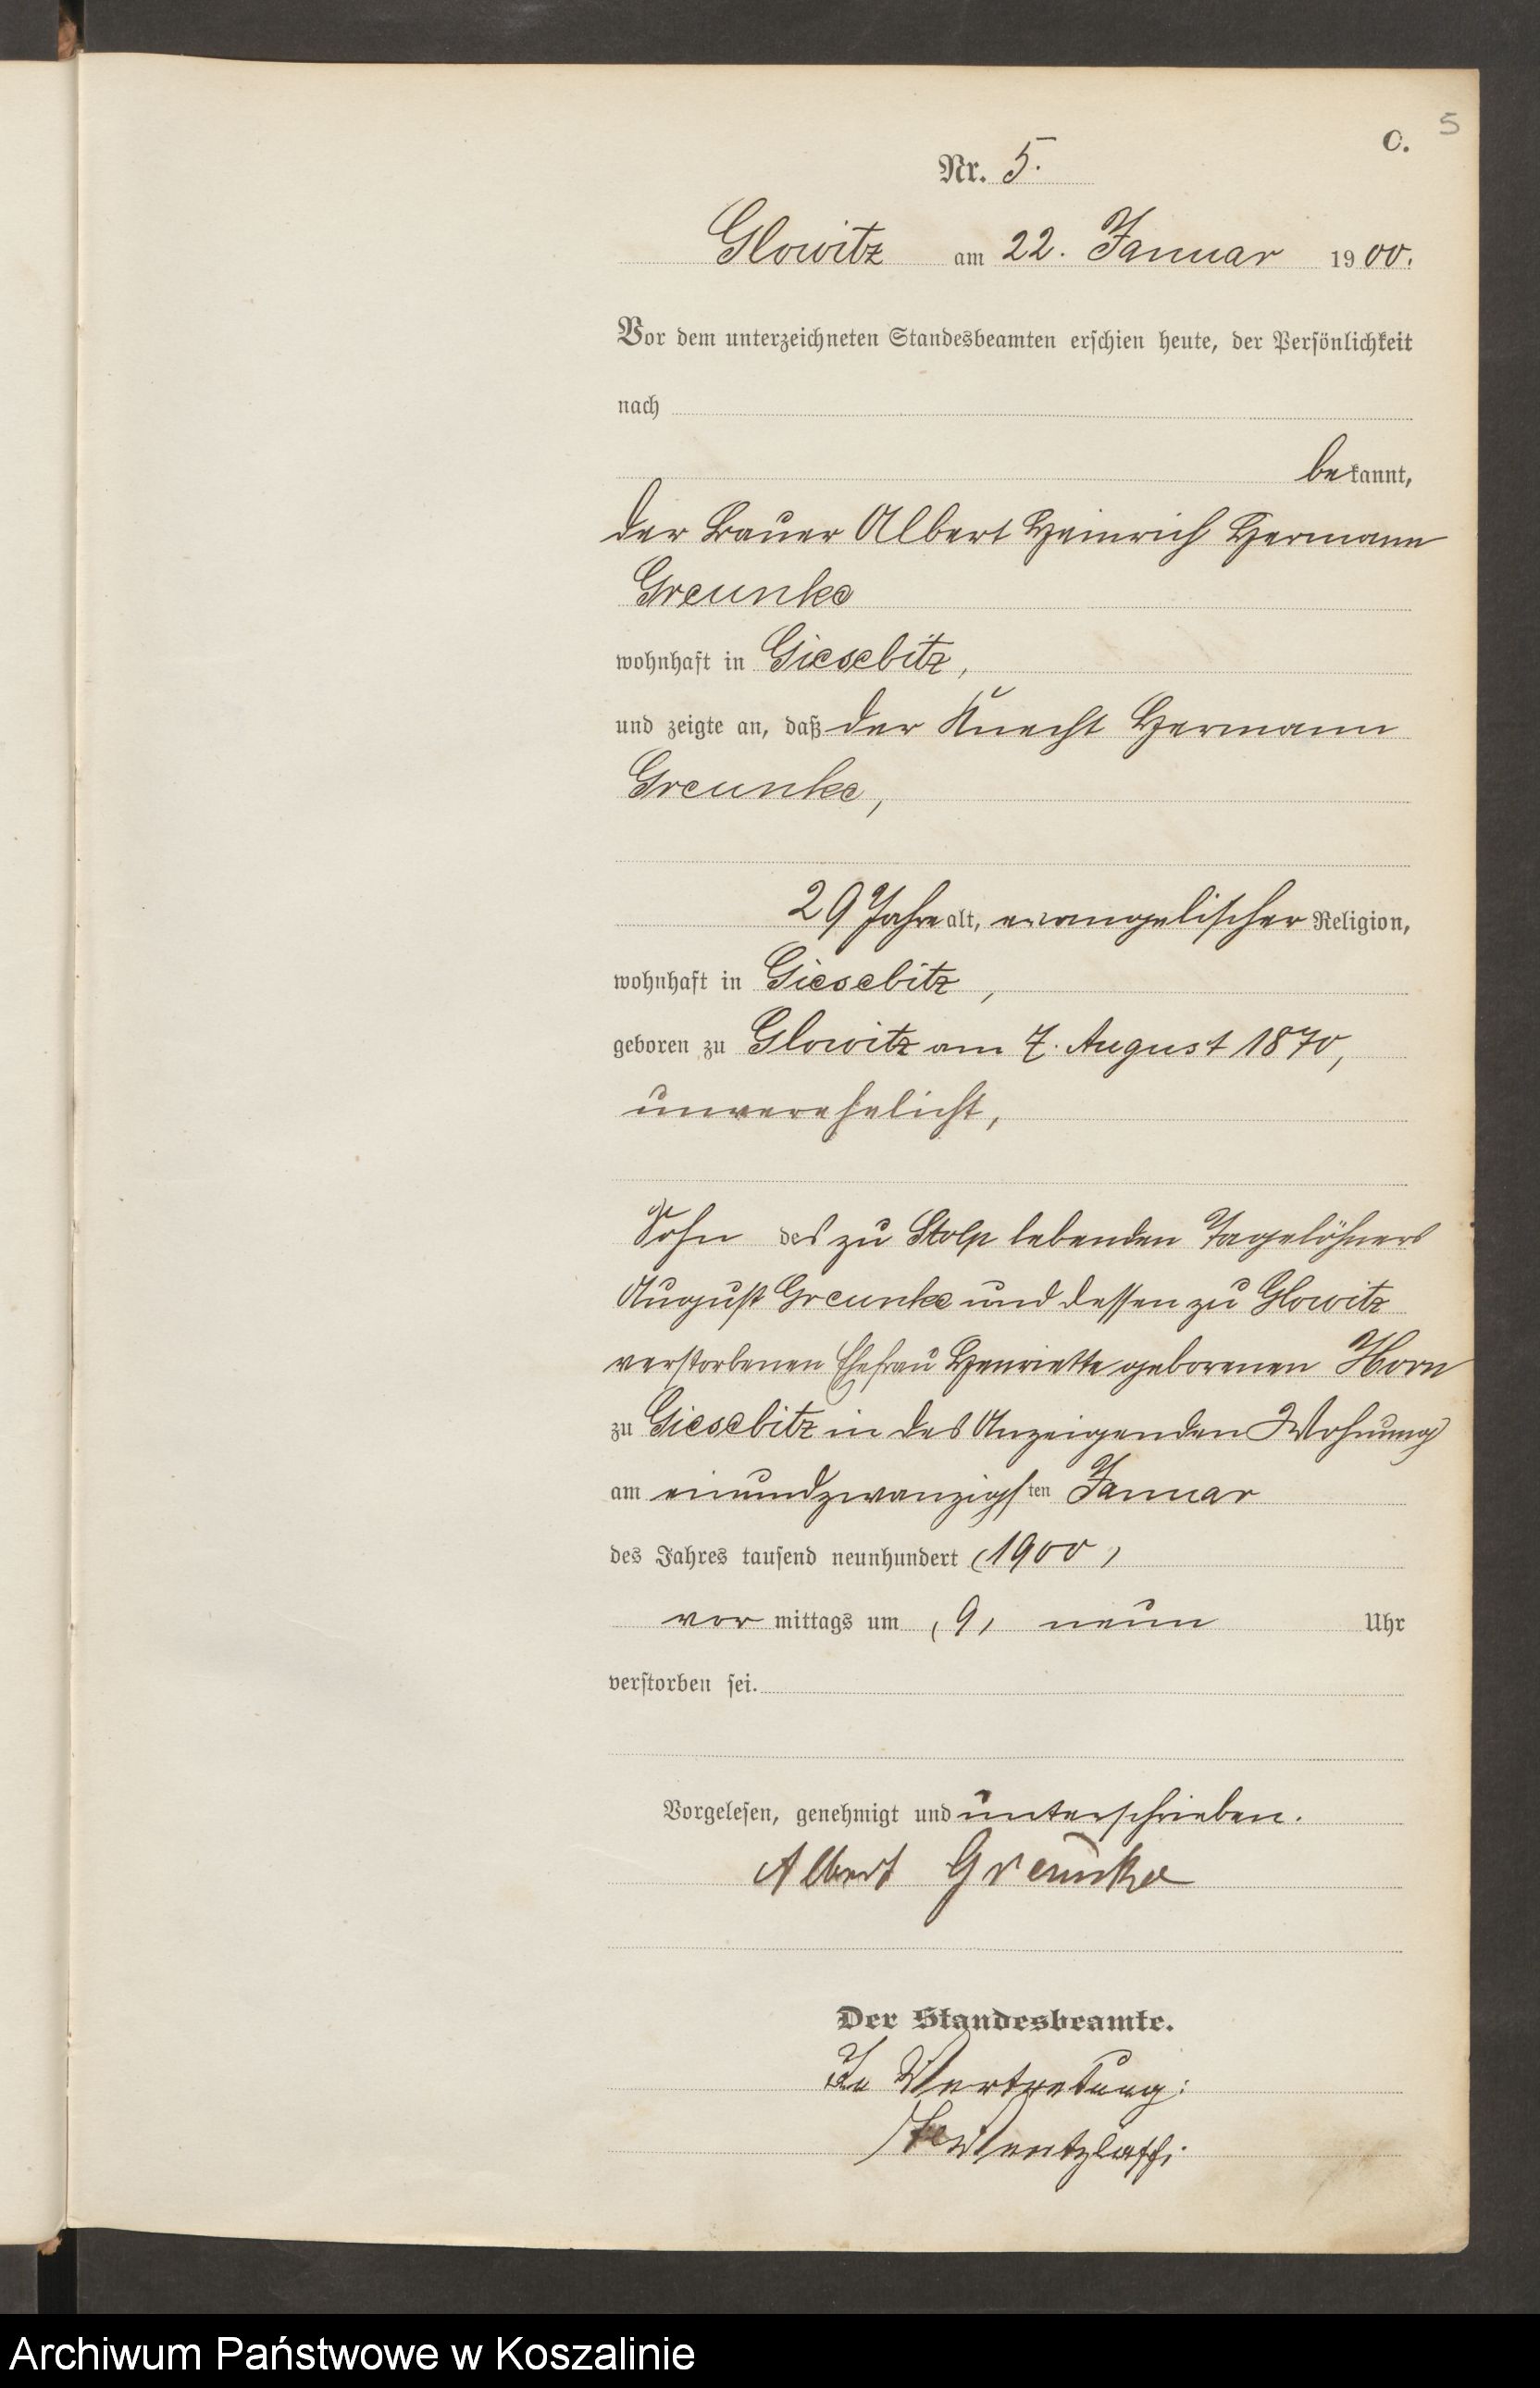 5
C.
Nr. 5.
Glowitz am 22. Januar 1900.
Vor dem unterzeichneten Standesbeamten erschien heute, der Persönlichkeit
nach
bekannt,
der Bauer Albert Heinrich Hermann
Greunke
wohnhaft in Giesebitz,
und zeigte an, daß der Knecht Hermann
Greunke,
29 Jahre alt, evangelischer Religion,
wohnhaft in Giesebitz,
geboren zu Glowitz am 7. August 1870,
unverehelicht,
Sohn des zu Stolp lebenden Tagelöhners
August Greunke und dessen zu Glowitz
verstorbenen Ehefrau Henriette geborenen Horn
zu Giesebitz in des Anzeigenden Wohnung
am einundzwanzigsten Januar
des Jahres tausend neunhundert (1900)
vormittags um (9) neun Uhr
verstorben sei.
Vorgelesen, genehmigt und unterschrieben.
Albert Greunke
Der Standesbeamte.
In Vertretung:
Wentzlaff.
Archiwum Państwowe w Koszalinie